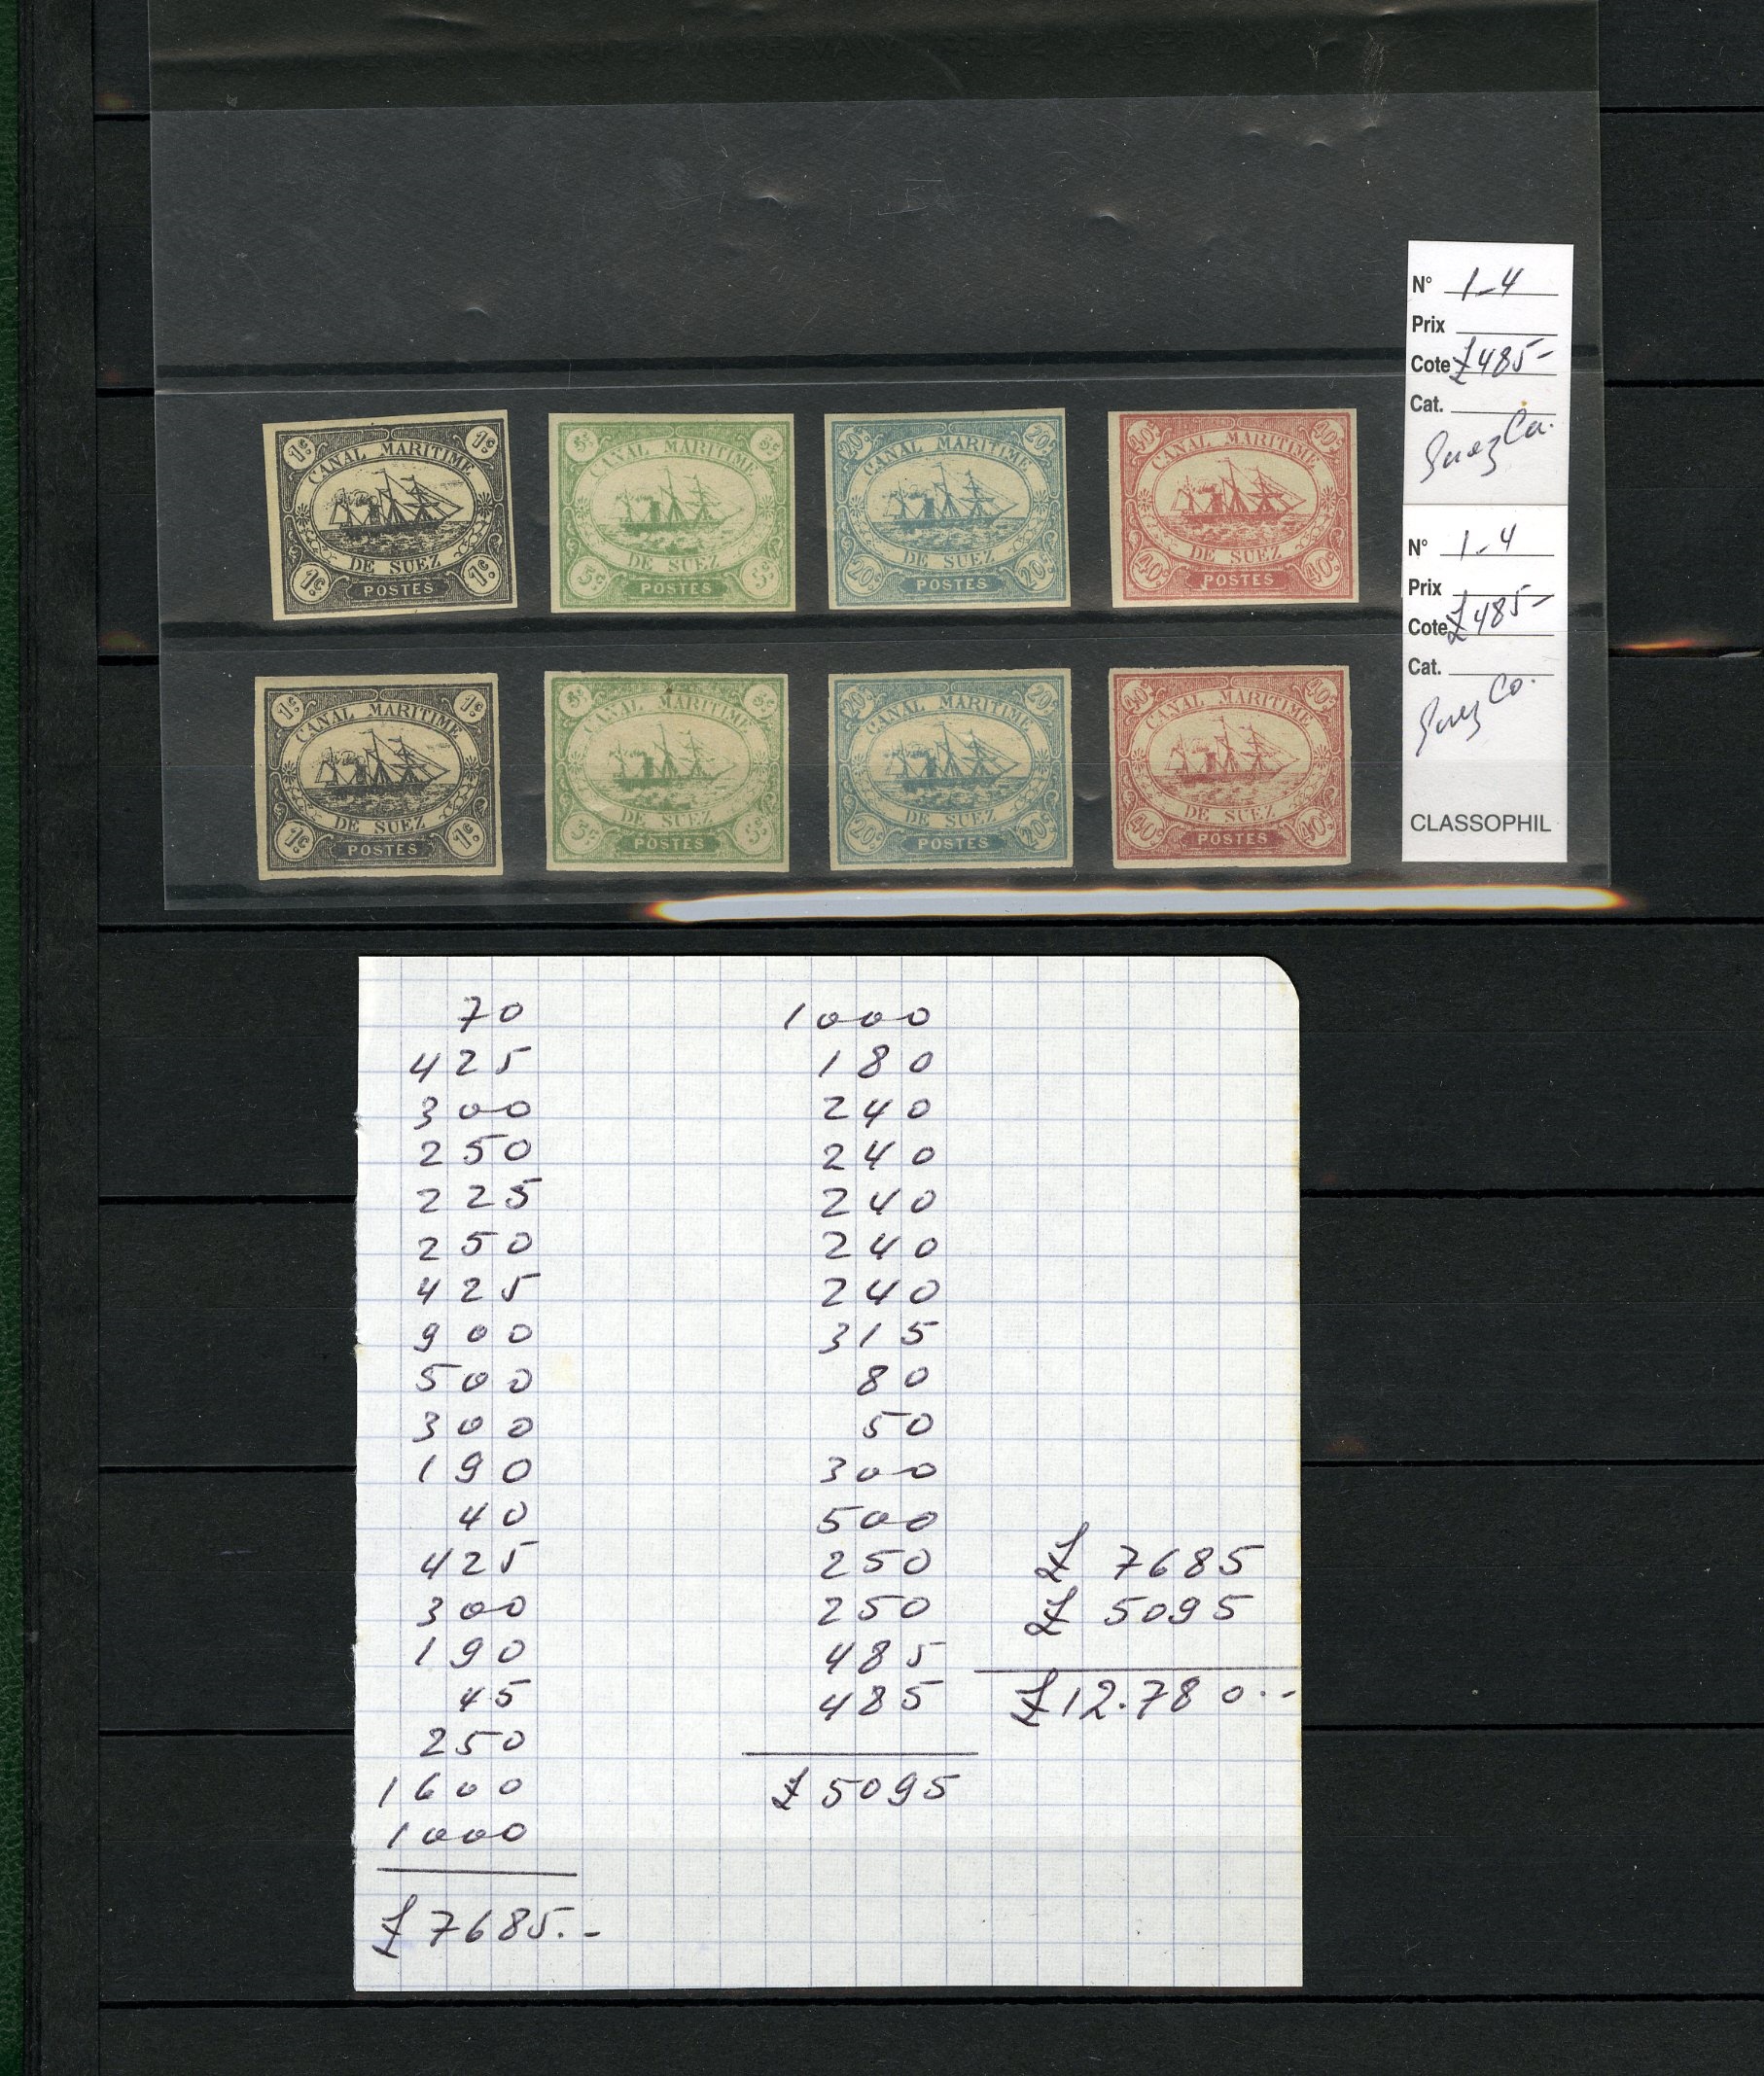 1c 1c
CANAL MARITIME
DE SUEZ
1c 1c
POSTES
5c 5c
CANAL MARITIME
DE SUEZ
5c 5c
POSTES
20c 20c
CANAL MARITIME
DE SUEZ
20c 20c
POSTES
40c 40c
CANAL MARITIME
DE SUEZ
40c 40c
POSTES
N° 1-4
Prix
Cote £485-
Cat.
Suez Ca.
1c 1c
CANAL MARITIME
DE SUEZ
1c 1c
POSTES
5c 5c
CANAL MARITIME
DE SUEZ
5c 5c
POSTES
20c 20c
CANAL MARITIME
DE SUEZ
20c 20c
POSTES
40c 40c
CANAL MARITIME
DE SUEZ
40c 40c
POSTES
N° 1-4
Prix
Cote £485-
Cat.
Suez Co.
CLASSOPHIL
70
425
300
250
225
250
425
900
500
300
190
40
425
300
190
45
250
1600
1000
£7685.-
1000
180
240
240
240
240
240
315
80
50
300
500
250
250
485
485
£5095
£ 7685
£ 5095
£12.780.-